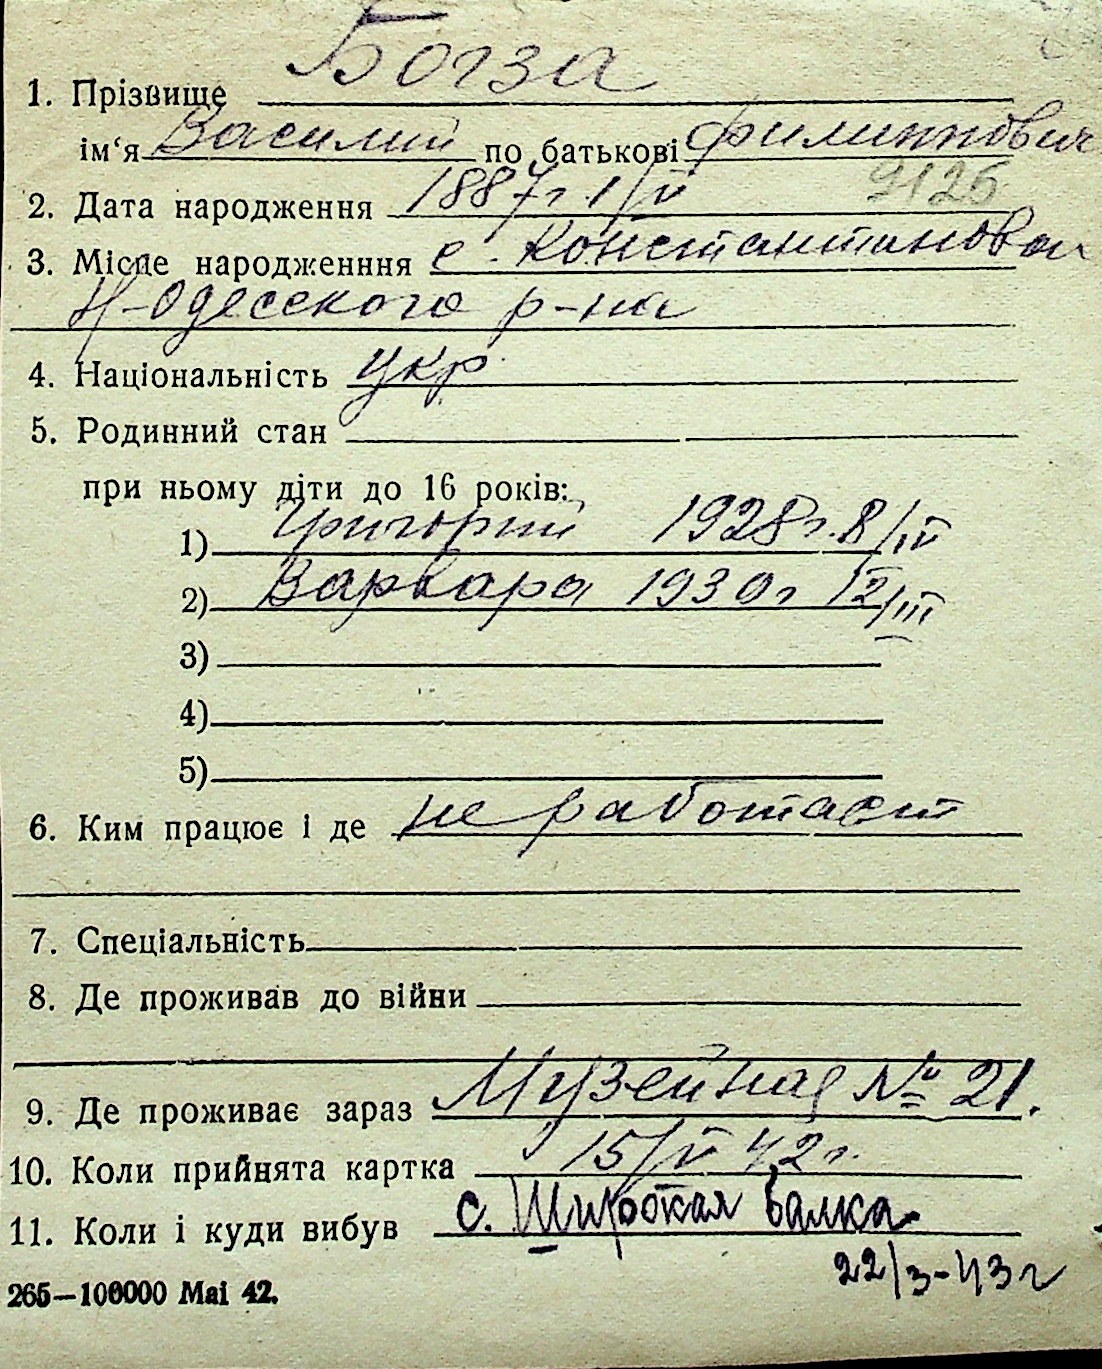 1. Прізвище Богза
ім‘я Василий по батькові Филиппович
9125
2. Дата народження 1887 г. 1/V
3. Місце народженння с. Константиновка
Н-Одесского р-на
4. Національність укр
5. Родинний стан
при ньому діти до 16 років:
1) Григорий 1928 г. 8/IV
2) Варвара 1930 г 12/III
3)
4)
5)
6. Ким працює і де не работает
7. Спеціальність
8. Де проживав до війни
9. Де проживає зараз Музейная № 21.
10. Коли прийнята картка 15/V 42 г.
11. Коли і куди вибув с. Широкая Балка
22/3-43 г
265—100000 Mai 42.